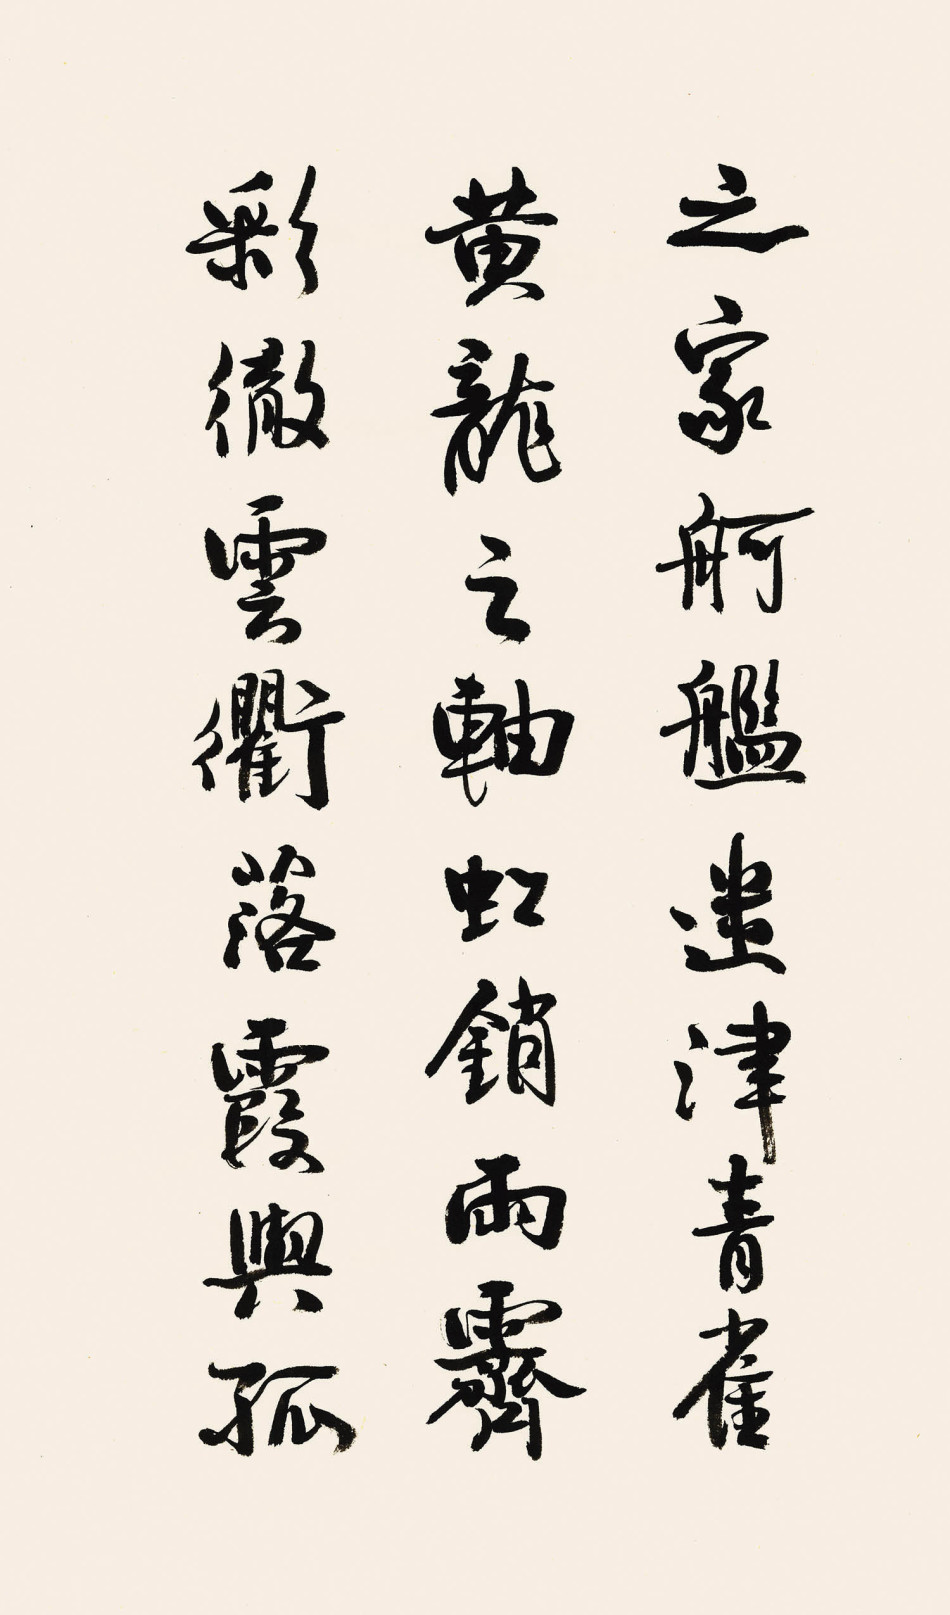 之家舸艦迷津青雀
黄龍之軸虹銷雨霽
彩徹雲衢落霞與孤